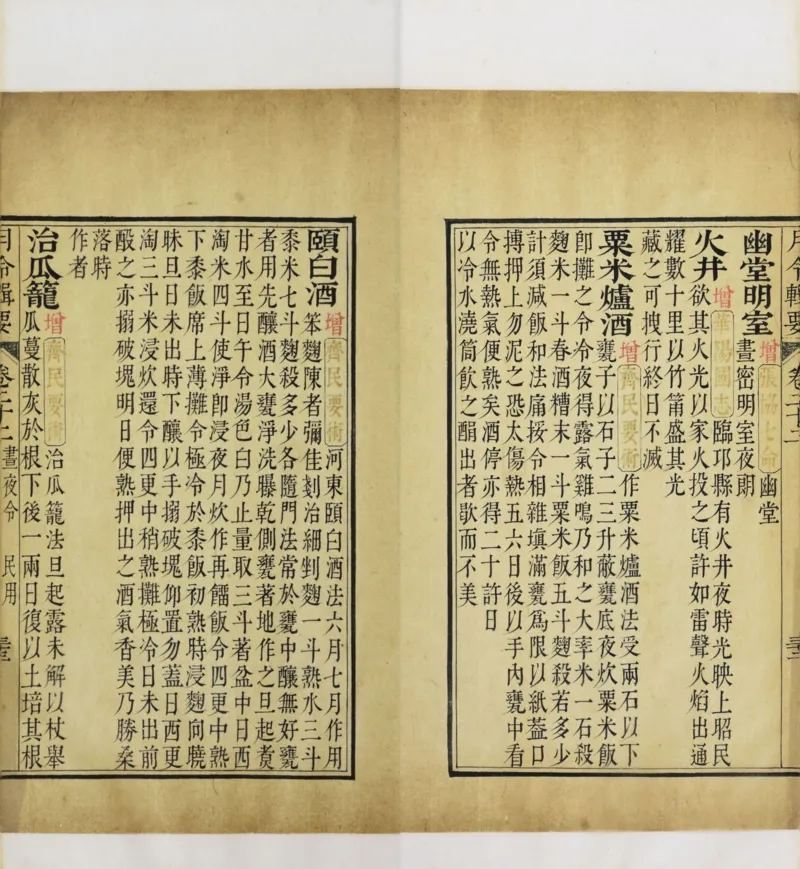 幽堂明室 增 張協七命 幽堂
晝密明室夜朗
火井 增 華陽國志 臨邛縣有火井夜時光映上昭民
欲其火光以家火投之頃許如雷聲火焰出通
耀數十里以竹筩盛其光
藏之可拽行終日不滅
粟米爐酒 增 齊民要術 作粟米爐酒法受兩石以下
甕子以石子二三升蔽甕底夜炊粟米飯
卽攤之令冷夜得露氣雞鳴乃和之大率米一石殺
麴米一斗春酒糟末一斗粟米飯五斗麴殺若多少
計須減飯和法痛挼令相雜塡滿甕爲限以紙葢口
摶押上勿泥之恐太傷熱五六日後以手內甕中看
令無熱氣便熟矣酒停亦得二十許日
以冷水澆筒飲之酳出者歇而不美
頤白酒 增 齊民要術 河東頤白酒法六月七月作用
笨麴陳者彌佳剗治細剉麴一斗熟水三斗
黍米七斗麴殺多少各隨門法常於甕中釀無好甕
者用先釀酒大甕淨洗曝乾側甕著地作之旦起煑
甘水至日午令湯色白乃止量取三斗著盆中日西
淘米四斗使淨卽浸夜月炊作再餾飯令四更中熟
下黍飯席上薄攤令極冷於黍飯初熟時浸麴向曉
昧旦日未出時下釀以手搦破塊仰置勿葢日西更
淘三斗米浸炊還令四更中稍熟攤極冷日未出前
酘之亦搦破塊明日便熟押出之酒氣香美乃勝桑
落時
作者
治瓜籠 增 齊民要術 治瓜籠法旦起露未解以杖舉
瓜蔓散灰於根下後一兩日復以土培其根
月令輯要 卷二十二 晝夜令 民用